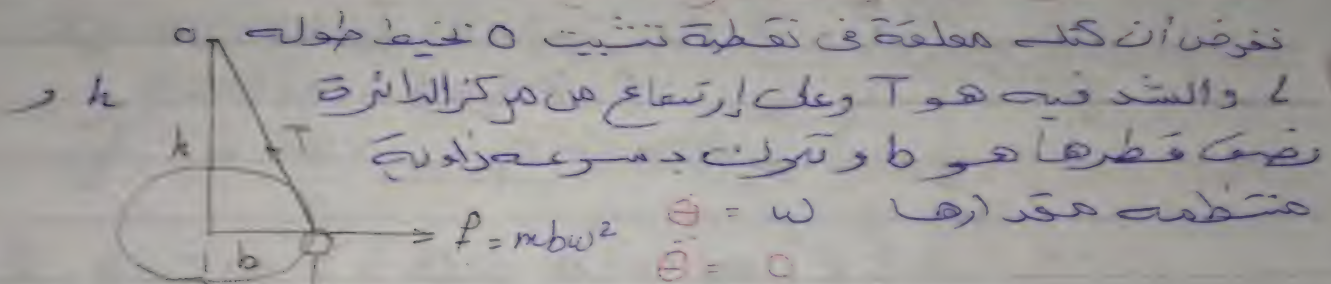 نفرض أن كتلة معلقة فى نقطة تثبيت O بخيط طوله
L والشد فيه هو T وعلى إرتفاع من مركز الدائرة h و
نصف قطرها هو b وتتحرك بسرعه زاوية
منتظمه مقدارها θ̇ = ω
θ̈ = 0
O
h
T
b
f = mbω²